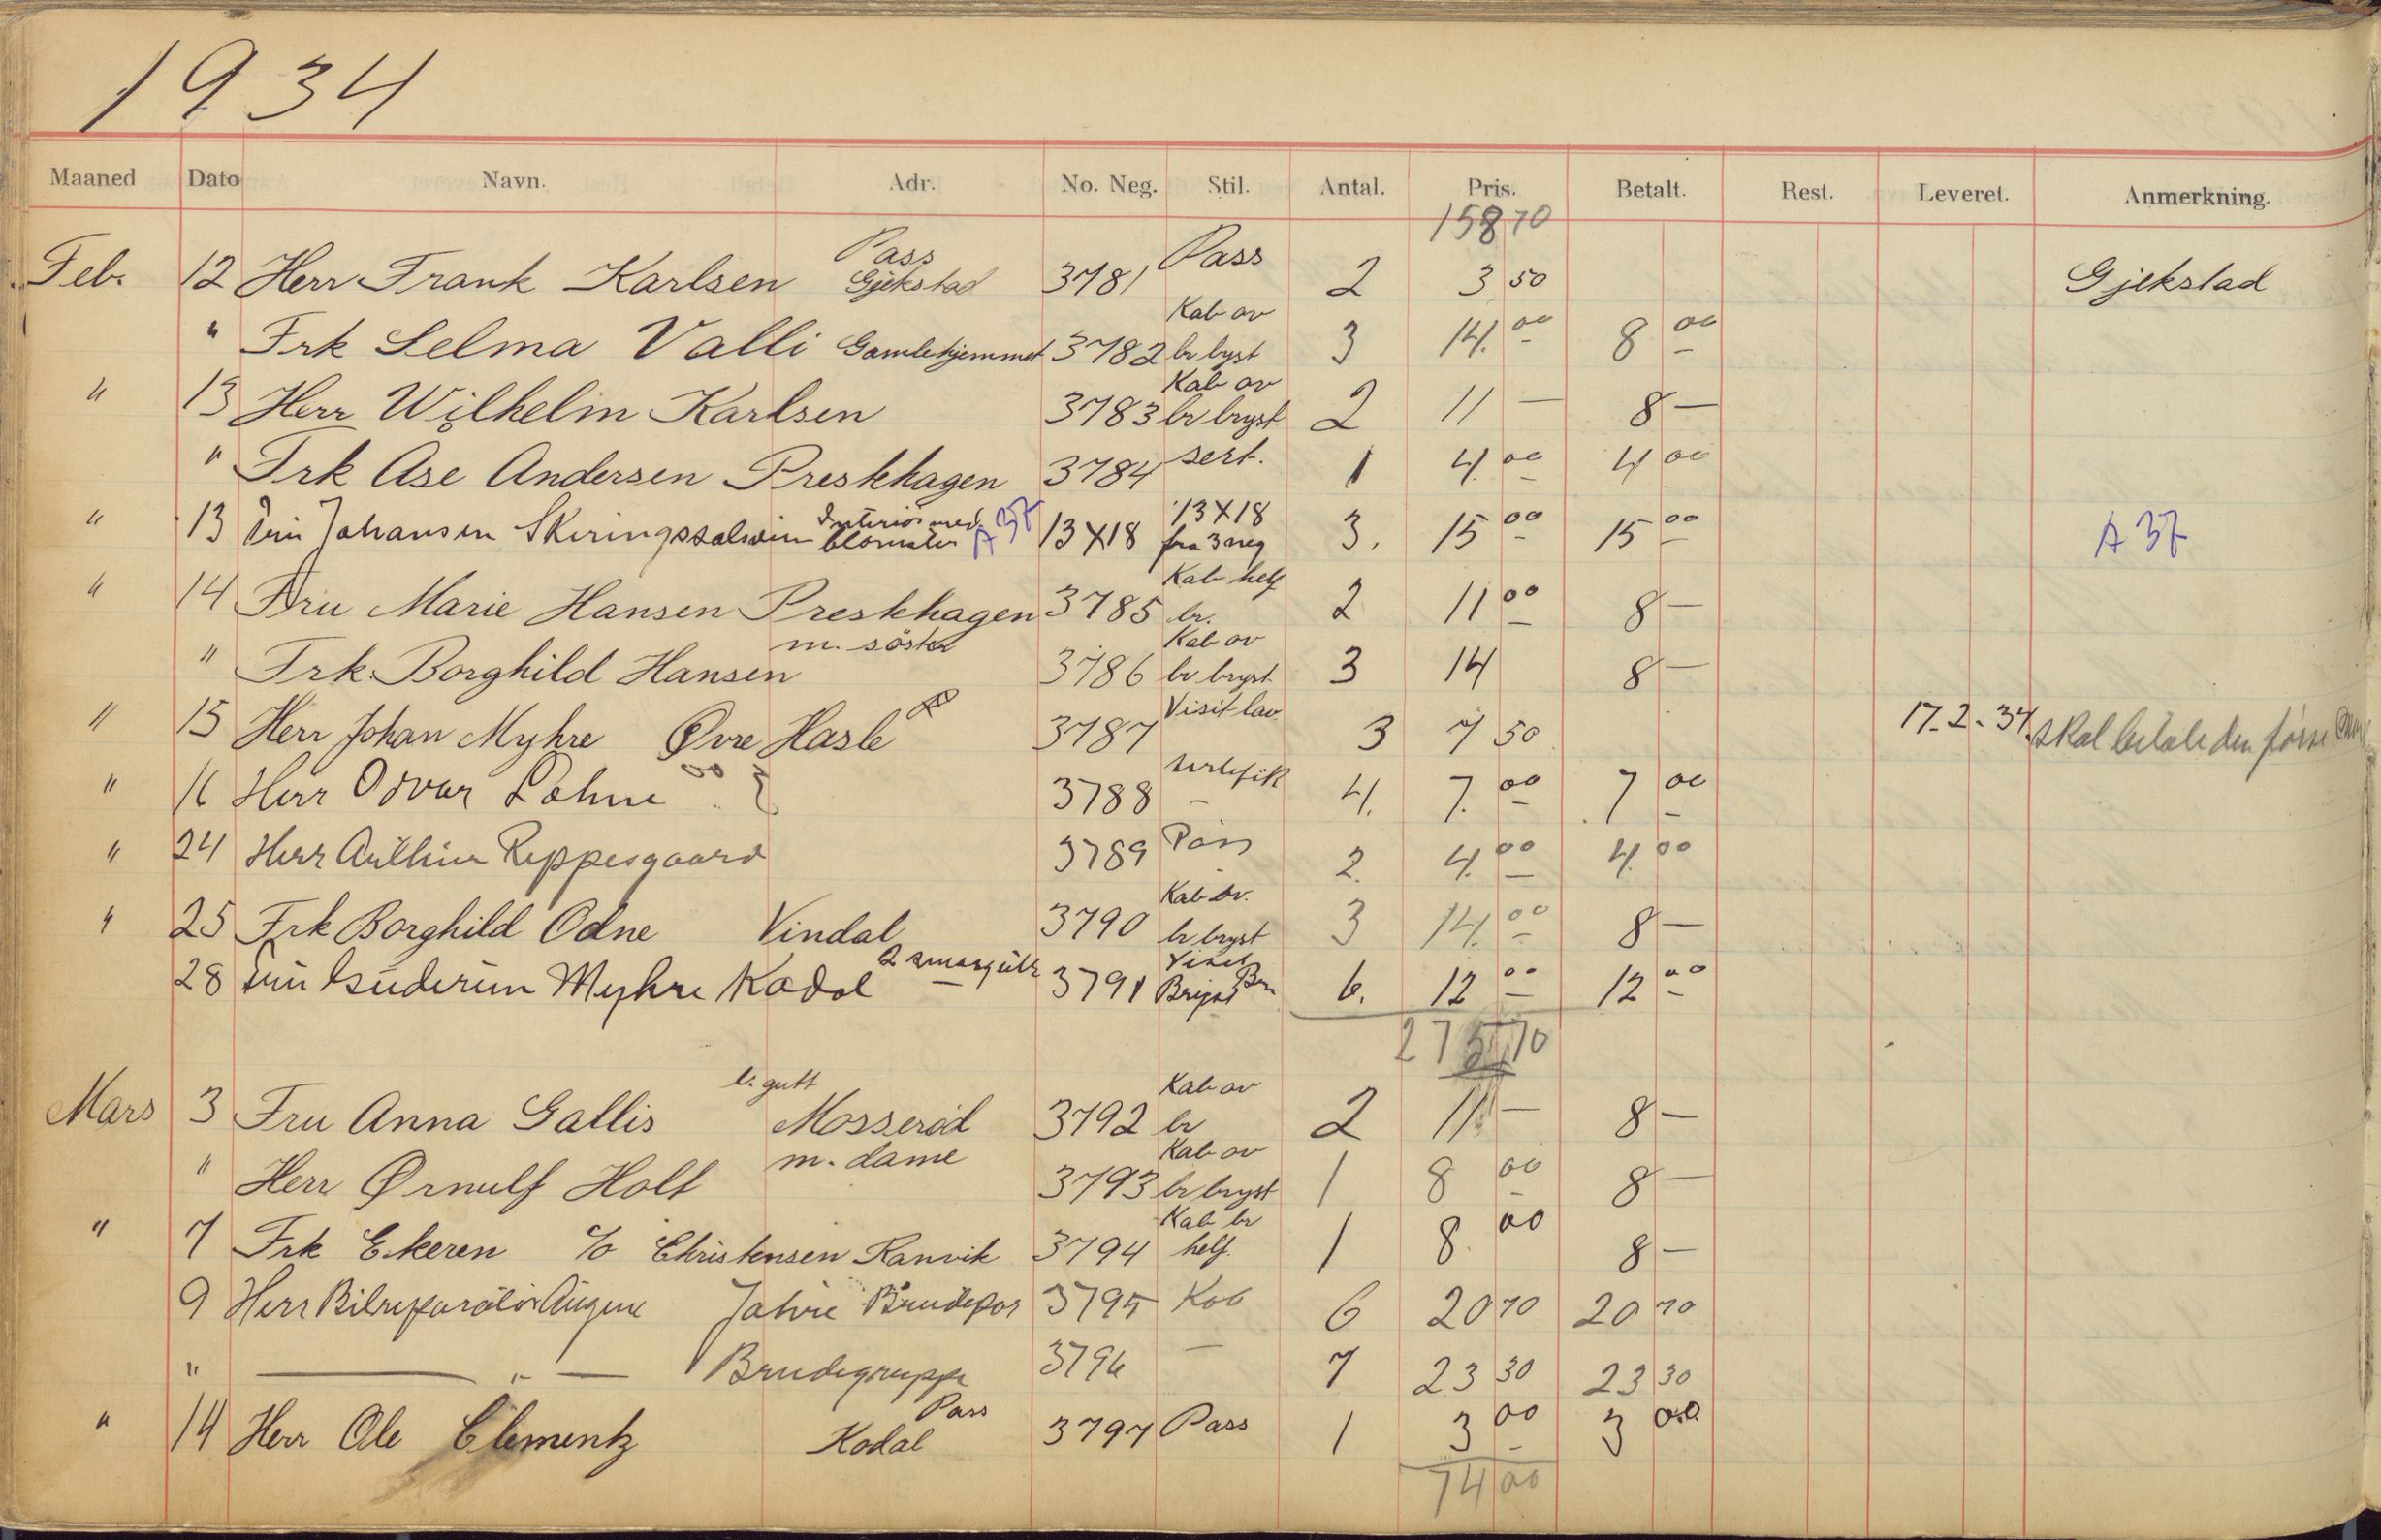 1934
Maaned Dato Navn. Adr. No. Neg. Stil. Antal. Pris. Betalt. Rest. Leveret. Anmerkning.
158 70
Pass
Feb. 12 Herr Frank Karlsen Gjekstad 3781 Pass 2 3 50 Gjekstad
Kab av
" Frk Selma Valli Gamlehjemmet 3782 br byst 3 14.00 8 00
Kab av
" 13 Herr Wilhelm Karlsen 3783 br bryst 2 11 — 8 —
" Frk Ase Andersen Preskhagen 3784 sert. 1 4.00 4 00
Interiör med 13X18
" 13 Johansen Skiringssalsveien blomster A 37 13X18 fra 3 neg 3. 15 00 15 00 A 37
Kab helf
" 14 Fru Marie Hansen Preskhagen 3785 br. 2 11 00 8 —
m. söster Kab av
" Frk. Borghild Hansen 3786 br bryst 3 14 8 —
Visit lav
" 15 Herr Johan Myhre Øvre Hasle 3787 3 7 50 17.2-34. skal betale den første
" 16 Herr Odvar Løhne 3788 sertefik — 4. 7.00 7 00
" 24 Herr Arthur Reppesgaard 3789 Pass 2. 4.00 4.00
Kab av.
" 25 Frk Borghild Odne Vindal 3790 br bryst 3 14.00 8 —
2 smaagutter Visit
28 Myhre Kodal 3791 Bryst Br 6. 12 00 12 00
27 70
l. gutt Kab av
Mars 3 Fru Anna Gallis Mosserød 3792 br 2 11 — 8 —
m. dame Kab av
" Herr Ørnulf Holt 3793 br bryst 1 8 00 8 —
Kab br
" 7 Frk Ekeren c/o Christensen Ranvik 3794 helf. 1 8.00 8 —
9 Herr Bilreparatör Jahre Brudepar 3795 Kab 6 20 70 20 70
" — " — Brudegruppe 3796 — 7 23 30 23 30
Pass
" 14 Herr Ole Clementz Kodal 3797 Pass 1 3 00 3 00
74 00